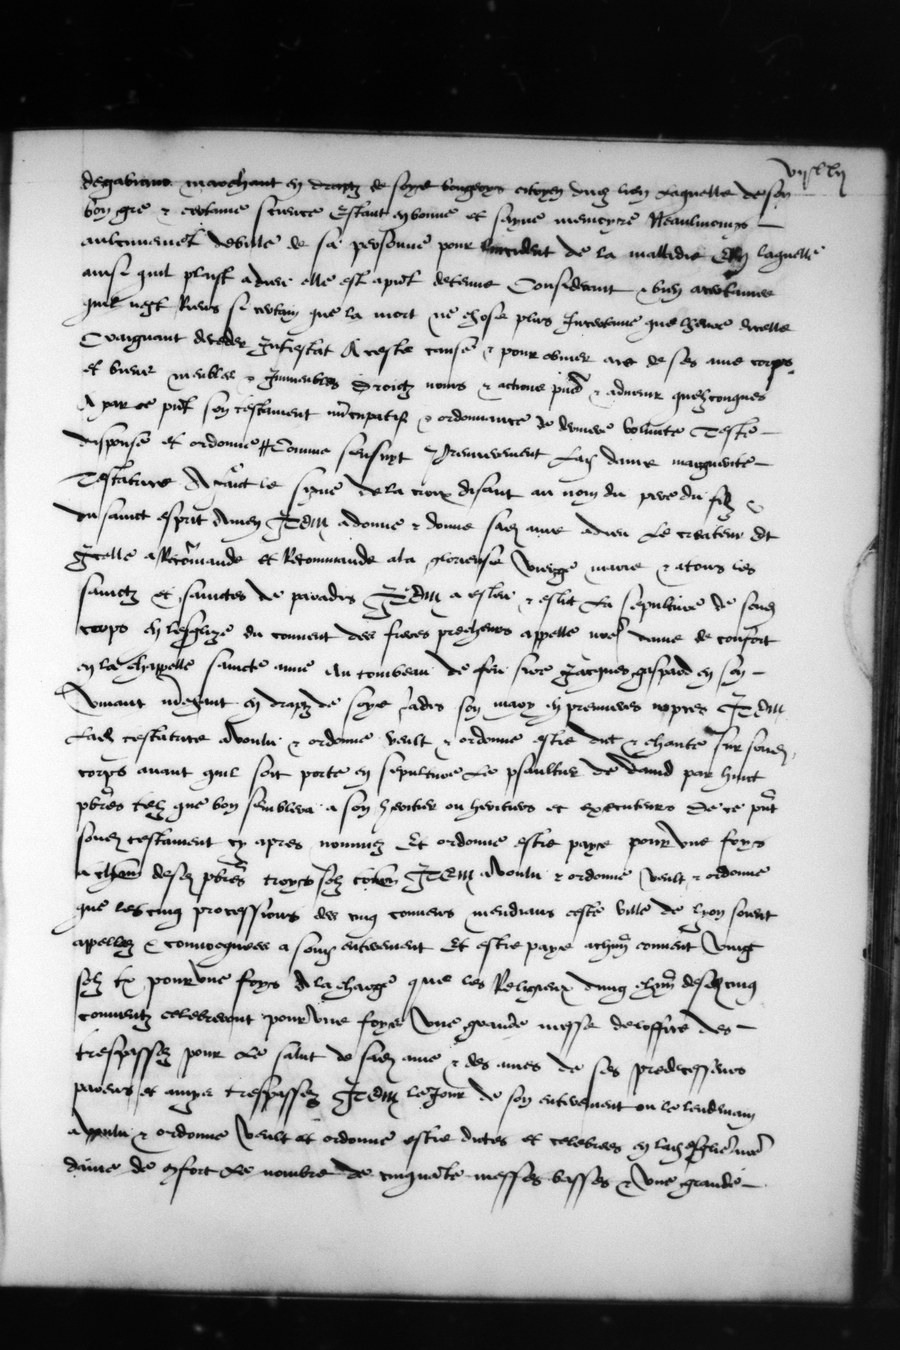 marchant en draptz de soye bourgeoys citoyen dudit lieu Laquelle de son
bon gre & certaine science Estant en bonne et sayne memoyre Neaulmoings
aulcunement debille de sa personne pour laccident de la malladie En laquelle
ainsi quil plaist a dieu elle est a pnt detenue Considerant & bien acertainee
quil nest Riens si certain que la mort ne chose plus Incertaine que lheure dicelle
Craignant deceder Intestat A ceste cause & pour obvier de ses ame corps
et biens meubles & Immeubles Droictz noms & actions pns & advenir quelzconques
A par ce pnt son testament nuncupatif & ordonnance de derniere volunte Teste
dispouse et ordonne Comme sensuyt Premierement Lad dame marguerite
Testatrice A faict le signe de la croix disant au nom du pere du filz &
du sainct esprit Amen ITEM a donne & donne sad ame a dieu Le createur Et
Icelle a Recommande et Recommande a la glorieuse Vierge marie & a tous les
sainctz et sainctes de paradis ITEM a esleu & eslit La sepulture de sond
corps En lesglize du convent des freres prescheurs appelle nre dame de confort
en la chappelle saincte anne Au tombeau de feu sire Jacques gaspard en son
Vivant marchant en draptz de soye Jadis son mary en premieres nopces ITEM
Lad testatrice a voulu & ordonne veult & ordonne estre dit & chante sur sond
corps avant quil soit porte en sepulture Le psaultier de david par huict
pbres telz que bon semblera a son heritier ou heritiers et executeurs De ce pnt
sond testament cy apres nommez Et ordonne estre paye pour une foys
a chun desd pbres troys solz ITEM a voulu & ordonne veult & ordonne
que les cinq processions des cinq convens mendians ceste ville de lyon soient
apellez & convocquees a son enterrement Et estre paye a chun convent Vingt
solz tz pour une foys A la charge que les Religieux dung chun desd cinq
conventz celebreront pour une foys Une grande messe de loffice des
trespassez pour Le salut de sad ame & des ames de ses predecesseurs
parens et amys trespassez ITEM le Jour de son enterrement ou le lendemain
a voulu & ordonne Veult et ordonne estre dictes et celebrees en lad esglise nre
dame de confort Le nombre de cinquante messes basses & Une grande